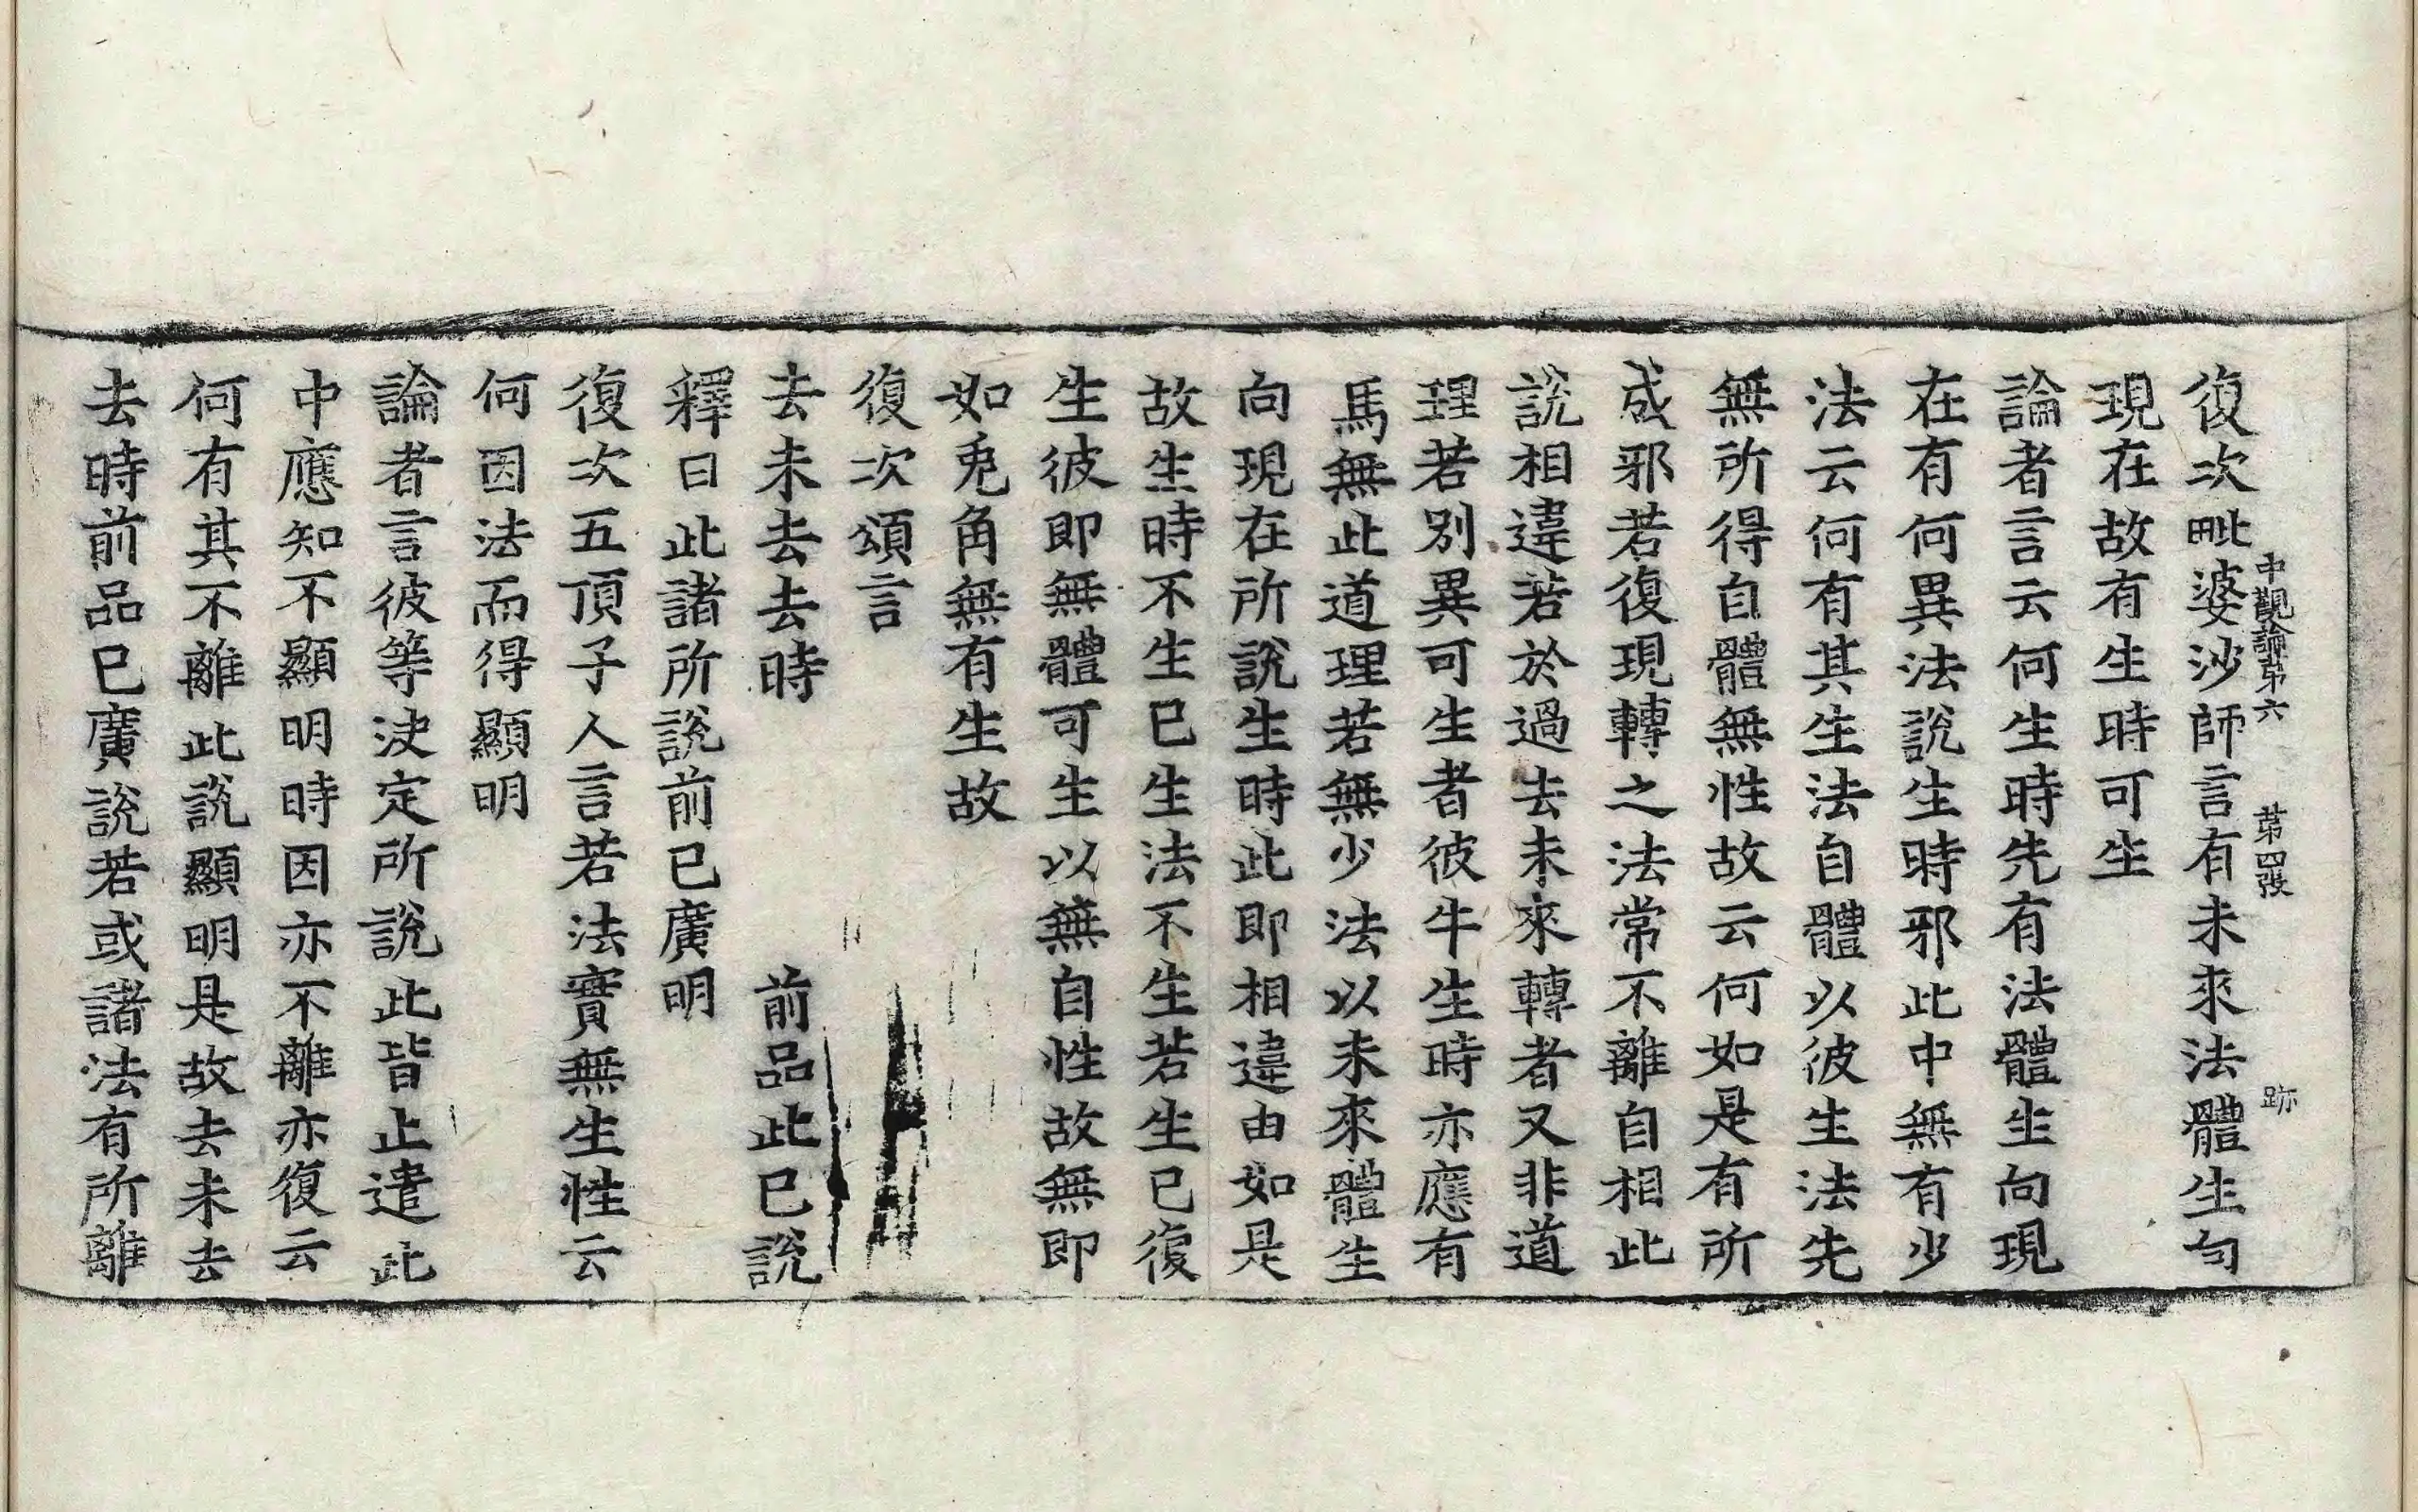 中觀論第六 第四張 跡
復次毗婆沙師言有未來法體生句
現在故有生時可生
論者言云何生時先有法體生向現
在有何異法說生時邪此中無有少
法云何有其生法自體以彼生法先
無所得自體無性故云何如是有所
成邪若復現轉之法常不離自相此
說相違若於過去未來轉者又非道
理若別異可生者彼牛生時亦應有
馬無此道理若無少法以未來體生
向現在所說生時此即相違由如是
故生時不生已生法不生若生已復
生彼即無體可生以無自性故無即
如兎角無有生故
復次頌言
去未去去時 前品此已說
釋曰此諸所說前已廣明
復次五頂子人言若法實無生性云
何因法而得顯明
論者言彼等決定所說此皆止遣此
中應知不顯明時因亦不離亦復云
何有其不離此說顯明是故去未去
去時前品已廣說若或諸法有所離